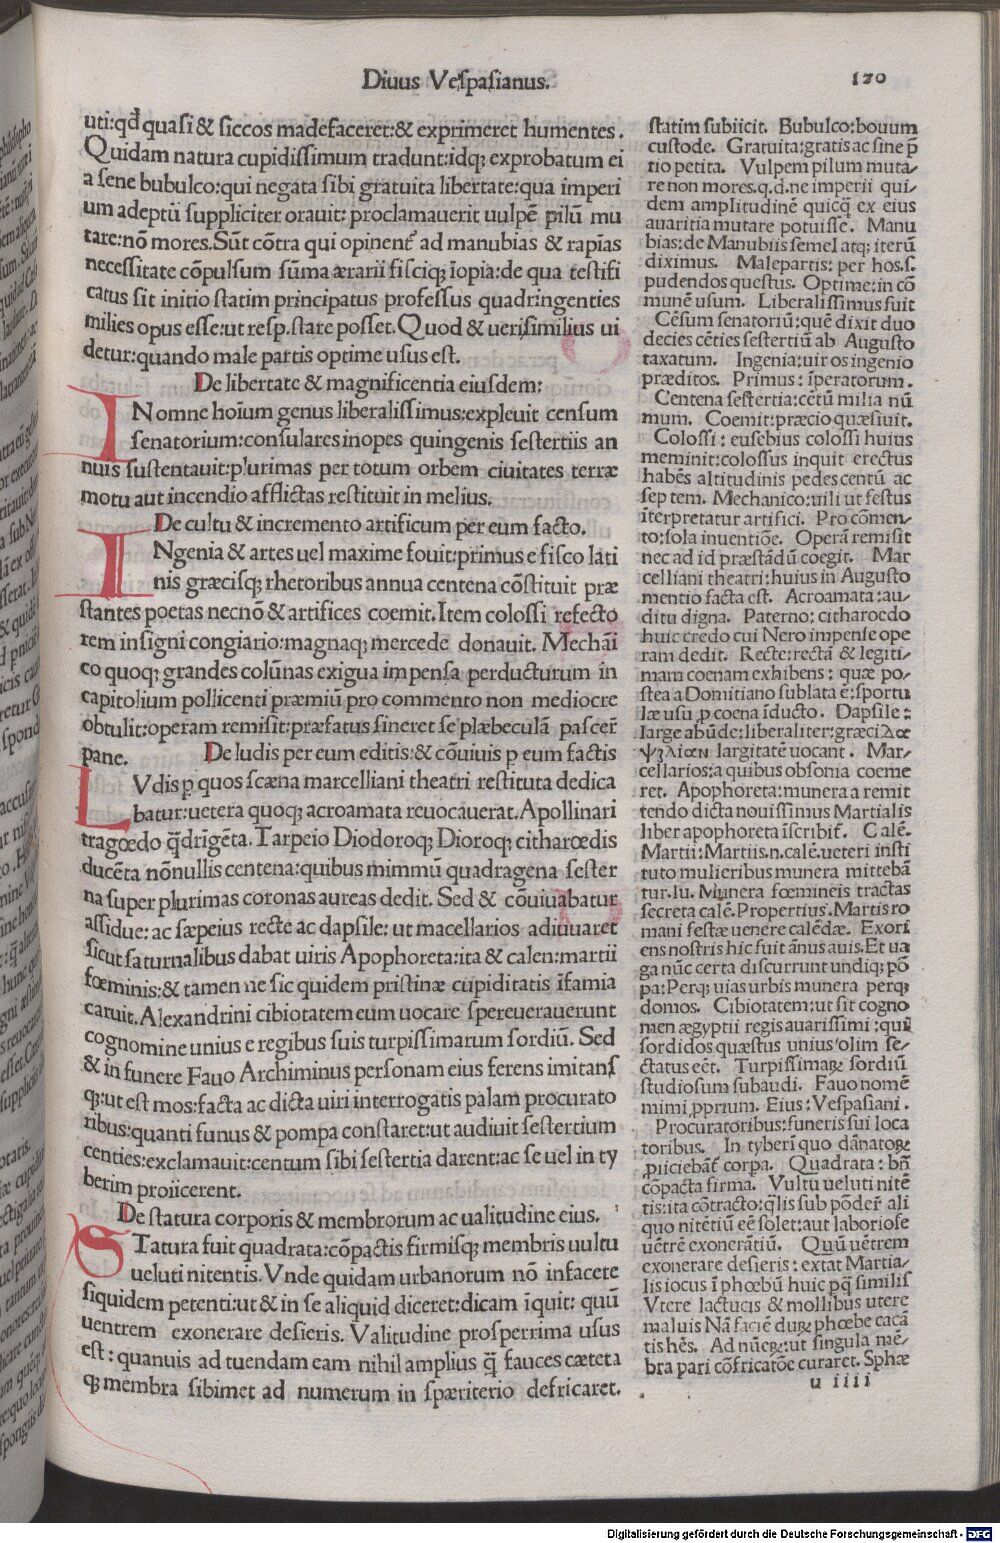 Diuus Veſpaſianus.
120
uti:qđ quaſi & ſiccos madefaceret:& exprimeret humentes.
Quidam natura cupidiſſimum tradunt:idq; exprobatum ei
a ſene bubulco:qui negata ſibi gratuita libertate:qua imperi
um adeptū ſuppliciter orauit: proclamauerit uulpē pilū mu
tare:nō mores.Sūt cōtra qui opinenť ad manubias & rapīas
neceſſitate cōpulſum ſūma ærarii fiſciq; īopia:de qua teſtifi
catus ſit initio ſtatim principatus profeſſus quadringenties
milies opus eſſe:ut reſp.ſtare poſſet.Quod & ueriſimilius ui
detur:quando male partis optime uſus eſt.
De libertate & magnificentia eiuſdem:
INomne hoīum genus liberaliſſimus:expleuit cenſum
ſenatorium:conſulares inopes quingenis ſeſtertiis an
nuis ſuſtentauit:plurimas per totum orbem ciuitates terræ
motu aut incendio afflictas reſtituit in melius.
De cultu & incremento artificum per eum facto.
INgenia & artes uel maxime fouit:primus e fiſco lati
nis græciſq; rhetoribus annua centena cōſtituit præ
ſtantes poetas necnō & artifices coemit.Item coloſſi refecto
rem inſigni congiario:magnaq; mercede donauit. Mechāi
co quoq; grandes colūnas exigua impenſa perducturum in
capitolium pollicenti præmiū pro commento non mediocre
obtulit:operam remiſit:præfatus ſineret ſe plæbeculā paſceř
pane.
De ludis per eum editis:& cōuiuis p eum factis
LVdis p quos ſcæna marcelliani theatri reſtituta dedica
batur:uetera quoq; acroamata reuocauerat.Apollinari
tragœdo q̄drīgēta.Tarpeio Diodoroq; Dioroq; citharœdis
ducēta nōnullis centena:quibus mimmū quadragena ſeſter
na ſuper plurimas coronas aureas dedit. Sed & cōuiuabatur
aſſidue: ac ſæpeius recte ac dapſile: ut macellarios adiuuaret
ſicut ſaturnalibus dabat uiris Apophoreta:ita & calen:martii
fœminis:& tamen ne ſic quidem priſtinæ cupiditatis īfamia
caruit.Alexandrini cibiotatem eum uocare ſpereuerauerunt
cognomine unius e regibus ſuis turpiſſimarum ſordiū. Sed
& in funere Fauo Archiminus perſonam eius ferens imitanſ
q;:ut eſt mos:facta ac dicta uiri interrogatis palam procurato
ribus:quanti funus & pompa conſtaret:ut audiuit ſeſtertium
centies:exclamauit:centum ſibi ſeſtertia darent:ac ſe uel in ty
berim proiicerent.
De ſtatura corporis & membrorum ac ualitudine eius.
STatura fuit quadrata:cōpactis firmiſq; membris uultu
ueluti nitentis.Vnde quidam urbanorum nō infacete
ſiquidem petenti:ut & in ſe aliquid diceret:dicam īquit: quū
uentrem exonerare deſieris. Valitudine proſperrima uſus
eſt: quanuis ad tuendam eam nihil amplius q̄ fauces cæteta
q; membra ſibimet ad numerum in ſpæriterio defricaret.
ſtatim ſubiicit. Bubulco:bouum
cuſtode. Gratuita:gratis ac ſine p̄
tio petita. Vulpem pilum muta-
re non mores.q.d.ne imperii qui-
dem amplitudinē quicq̄ ex eius
auaritia mutare potuiſſe. Manu
bias:de Manubiis ſemel atq; iterū
diximus. Malepartis: per hos.ſ.
pudendos queſtus. Optime:in cō
munē uſum. Liberaliſſimus fuit
Cēſum ſenatoriū:quē dixit duo
decies cēties ſeſtertiū ab Auguſto
taxatum. Ingenia:uiros ingenio
præditos. Primus: īperatorum.
Centena ſeſtertia:cētū milia nū
mum. Coemit:præcio quæſiuit.
Coloſſi: euſebius coloſſi huius
meminit:coloſſus inquit erectus
habēs altitudinis pedes centū ac
ſeptem. Mechanico:uili ut feſtus
īterpretatur artifici. Pro cōmen-
to:ſola inuentiōe. Operā remiſit
nec ad id præſtādū coegit. Mar
celliani theatri:huius in Auguſto
mentio facta eſt. Acroamata:au-
ditu digna. Paterno: citharœdo
huic credo cui Nero impenſe ope
ram dedit. Recte:rectā & legiti-
mam coenam exhibens: quæ po-
ſtea a Domitiano ſublata ē:ſportu
læ uſu p coena īducto. Dapſile:
large abūde:liberaliter:græci λαε
ψιλίαν largitatē uocant. Mar-
cellarios:a quibus obſonia coeme
ret. Apophoreta:munera a remit
tendo dicta nouiſſimus Martialis
liber apophoreta īſcribiť. Calē.
Martii:Martiis.n.calē.ueteri inſti
tuto mulieribus munera mittebā
tur.Iu. Munera fœmineis tractas
ſecreta calē.Propertius.Martis ro
mani feſtæ uenere calēdæ. Exori
ens noſtris hic fuit ānus auis.Et ua
ga nūc certa diſcurrunt undiq; pō
pa:Perq; uias urbis munera perq;
domos. Cibiotatem:ut ſit cogno
men ægyptii regis auariſſimi:qui
ſordidos quæſtus unius olim ſe-
ctatus eēt. Turpiſſimaꝝ ſordiū
ſtudioſum ſubaudi. Fauo nomē
mimi pprium. Eius: Veſpaſiani.
Procuratoribus:funeris ſui loca
toribus. In tyberī quo dānatoꝝ
piiciebāt corpa. Quadrata: bn̄
cōpacta firma. Vultu ueluti nitē
tis:ita cōtracto:q̄lis ſub pōdeř ali
quo nitētiū eē ſolet:aut laborioſe
uētrē exonerātiū. Quū uētrem
exonerare deſieris: extat Martia-
lis iocus ī phœbū huic pq̄ ſimilis
Vtere lactucis & mollibus utere
maluis Nā faciē duꝝ phœbe cacā
tis hēs. Ad nūeꝝ:ut ſingula mē-
bra pari cōfricatōe curaret. Sphæ
u iiii
Digitalisierung gefördert durch die Deutsche Forschungsgemeinschaft - DFG